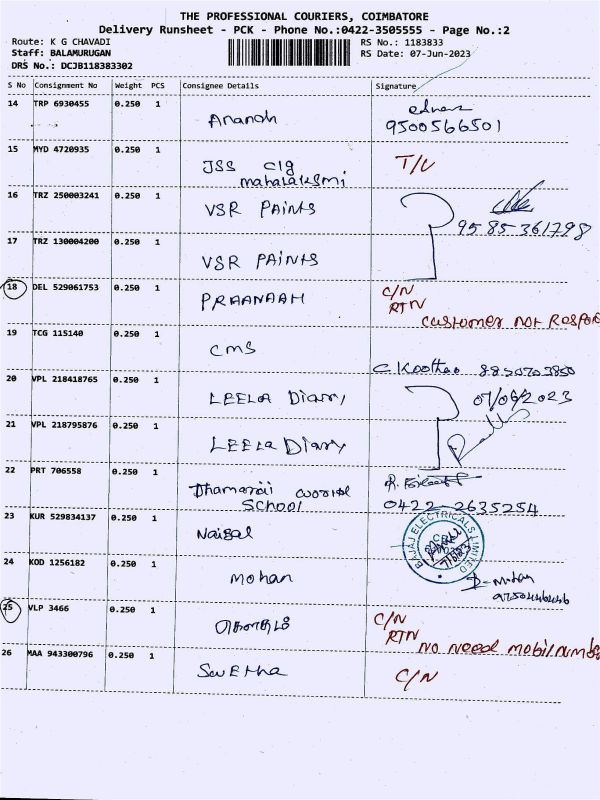 THE PROFESSIONAL COURIERS, COIMBATORE
Delivery Runsheet - PCK - Phone No.:0422-3505555 - Page No.:2
Route: K G CHAVADI
RS No.: 1183833
Staff: BALAMURUGAN
RS Date: 07-Jun-2023
DRS No.: DCJB118383302
S No Consignment No Weight PCS Consignee Details Signature
14 TRP 6930455 0.250 1 Anandh
9500566501
15 MYD 4720935 0.250 1 JSS clg T/L
mahalakshmi
16 TRZ 250003241 0.250 1 VSR PAINTS
95 85 361798
17 TRZ 130004200 0.250 1 VSR PAINTS
18 DEL 529061753 0.250 1 PRAANAAH C/N
RTN
customer not Respon
19 TCG 115140 0.250 1 CMS
20 VPL 218418765 0.250 1 LEELA Diary 07/06/2023
21 VPL 218795876 0.250 1 LEELA Diary
22 PRT 706558 0.250 1
School 0422-2635254
23 KUR 529834137 0.250 1
BAJAJ ELECTRICALS LIMITED
24 KOD 1256182 0.250 1 mohan
25 VLP 3466 0.250 1 கௌதம் C/N
RTN
No need mobil numbe
26 MAA 943300796 0.250 1 SwEtha C/N